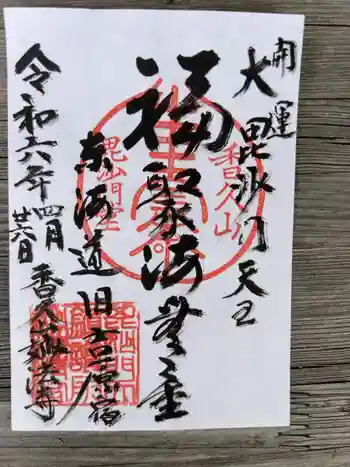 開運
大毘沙門天王
福聚海無量
東海道旧吉原宿
令和六年四月廿六日
香久山妙法寺
香久山
毘沙門堂